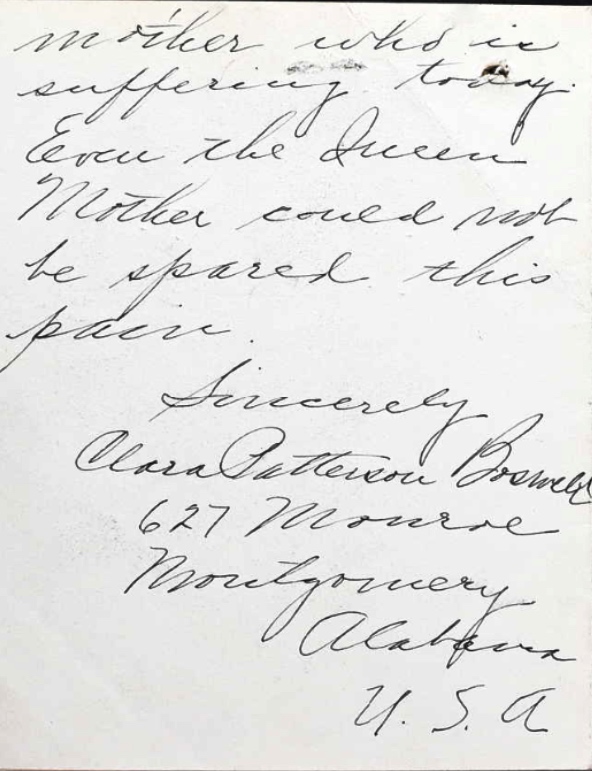 mother who is
suffering today.
Even the Queen
Mother could not
be spared this
pain.
Sincerely
Clara Patterson Boswell
627 Monroe
Montgomery
Alabama
U. S. A